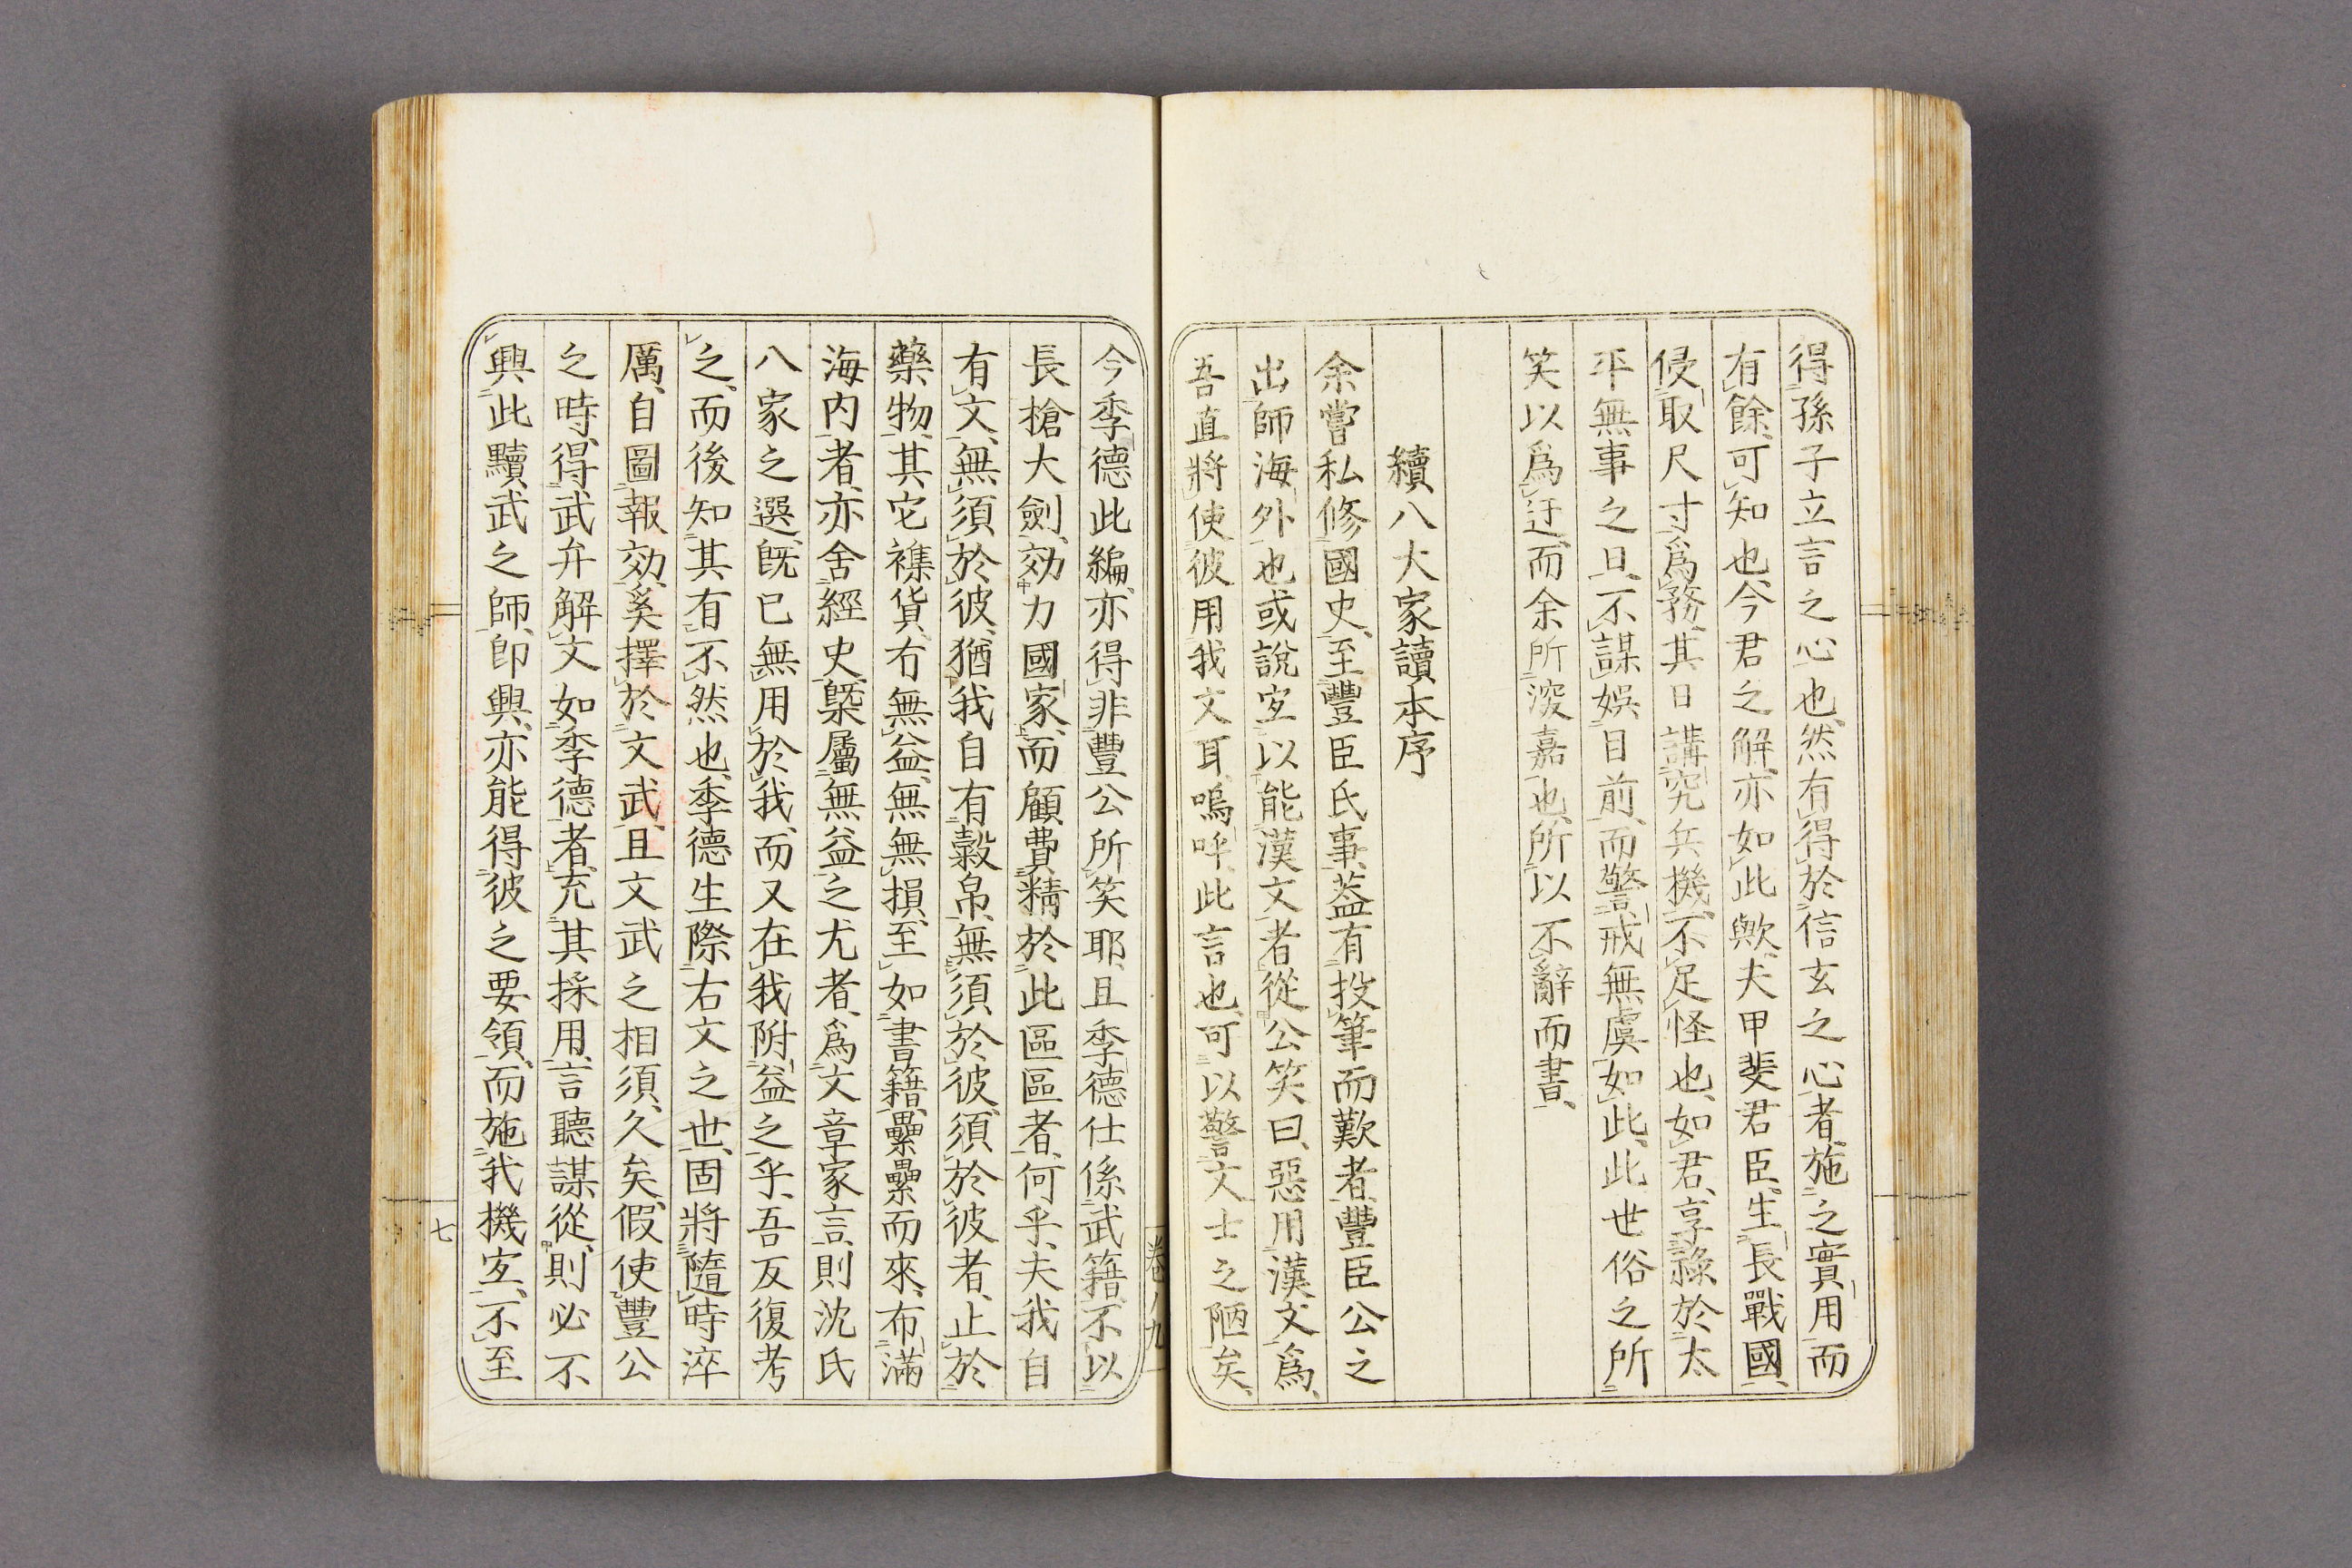 得孫子立言之心也、然有得於信玄之心者、施之實用而
有餘、可知也、今君之解、亦如此歟、夫甲斐君臣、生長戰國、
侵取尺寸爲務、其日講究兵機、不足怪也、如君、享祿於太
平無事之日、不謀娛目前、而警戒無虞如此、此世俗之所
笑以爲迂、而余所深嘉也、所以不辭而書、
續八大家讀本序
余嘗私修國史、至豐臣氏事、葢有投筆而歎者、豐臣公之
出師海外也、或說宜以能漢文者從、公笑曰、惡用漢文爲、
吾直將使彼用我文耳、嗚呼、此言也、可以警文士之陋矣、
今季德此編、亦得非豐公所笑耶、且季德仕係武籍、不以
長槍大劍、効力國家、而顧費精於此區區者、何乎、夫我自
有文、無須於彼、猶我自有穀帛、無須於彼、須於彼者、止於
藥物、其它襍貨、冇無益、無無損、至如書籍、纍纍而來、布滿
海内者、亦舍經史、槩屬無益之尤者、爲文章家言、則沈氏
八家之選、旣已無用於我、而又在我附益之乎、吾反復考
之、而後知其有不然也、季德生際右文之世、固將隨時淬
厲、自圖報効、奚擇於文武、且文武之相須、久矣、假使豐公
之時、得武弁解文如季德者、充其採用、言聽謀從、則必不
興此黷武之師、卽興、亦能得彼之要領、而施我機宜、不至
卷八九
七